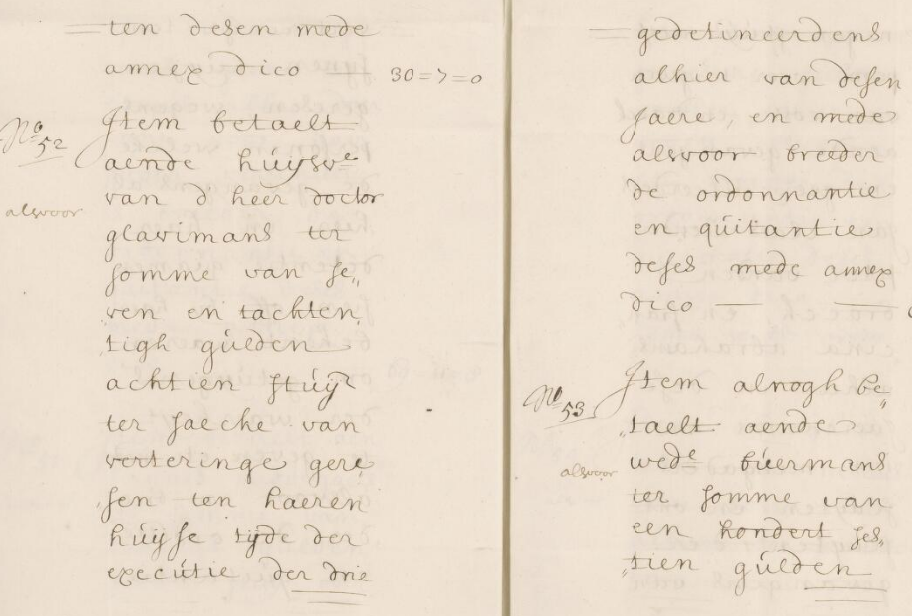 ten desen mede
annex dico — 30=7=0
No 52
Item betaelt
aende huijsve
alsvoor
van d heer doctor
glavimans ter
somme van se,,
ven en tachten,
,tigh gulden
achtien stuijr
ter saecke van
verteringe gere
,sen ten haeren
huijse tijde der
executie der drie
gedetineerdens
alhier van desen
jaere, en mede
alsvoor breeder
de ordonnantie
en quitantie
deses mede annex
dico — —
No 53
Item alnogh be,,
,,taelt aende
alsvoor
wede buermans
ter somme van
een hondert ses,,
,,tien gulden